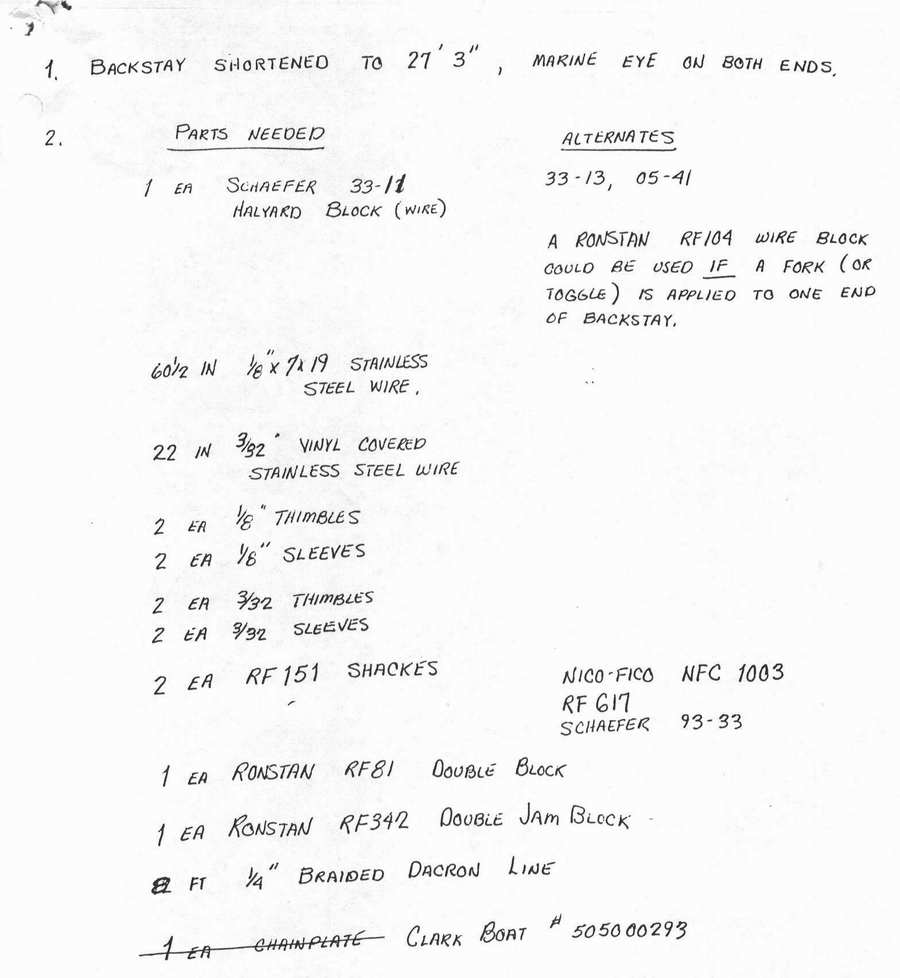 1. BACKSTAY SHORTENED TO 27' 3", MARINE EYE ON BOTH ENDS.
2. PARTS NEEDED ALTERNATES
1 EA SCHAEFER 33-11 33-13, 05-41
HALYARD BLOCK (WIRE)
A RONSTAN RF104 WIRE BLOCK
COULD BE USED IF A FORK (OR
TOGGLE) IS APPLIED TO ONE END
OF BACKSTAY.
60 1/2 IN 1/8" X 7X19 STAINLESS
STEEL WIRE.
22 IN 3/32" VINYL COVERED
STAINLESS STEEL WIRE
2 EA 1/8" THIMBLES
2 EA 1/8" SLEEVES
2 EA 3/32 THIMBLES
2 EA 3/32 SLEEVES
2 EA RF151 SHACKES NICO-FICO NFC 1003
RF 617
SCHAEFER 93-33
1 EA RONSTAN RF81 DOUBLE BLOCK
1 EA RONSTAN RF342 DOUBLE JAM BLOCK
FT 1/4" BRAIDED DACRON LINE
1 EA CHAINPLATE CLARK BOAT # 505000293